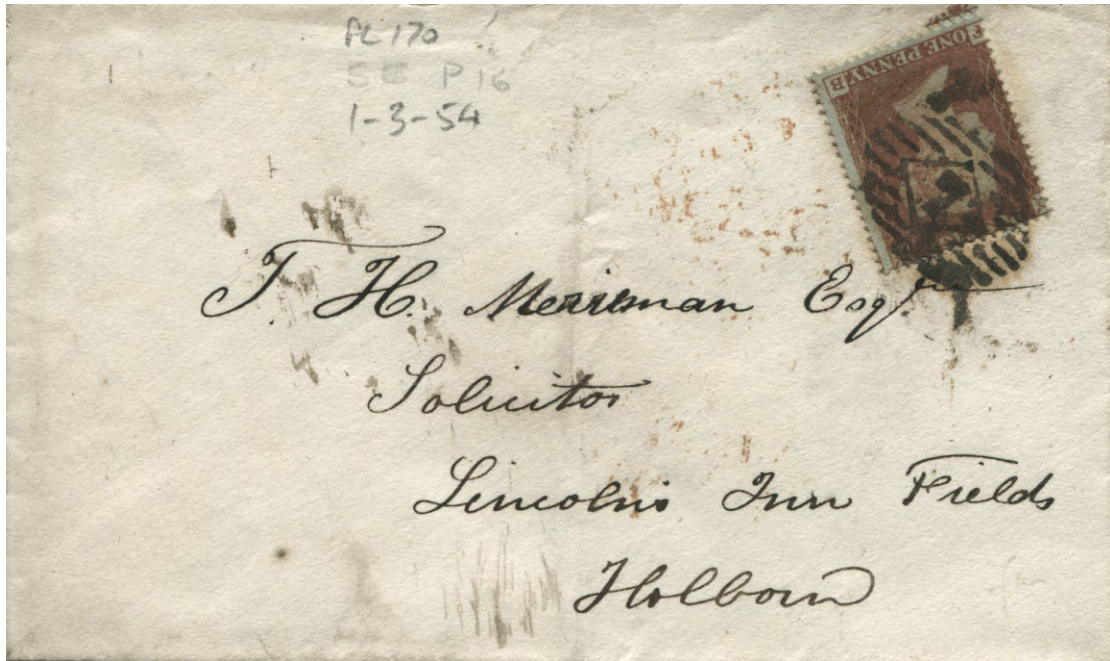 PL 170
SC P 16
1-3-54
ONE PENNY
B
T. H. Merriman Esqre
Solicitor
Lincolns Inn Fields
Holborn